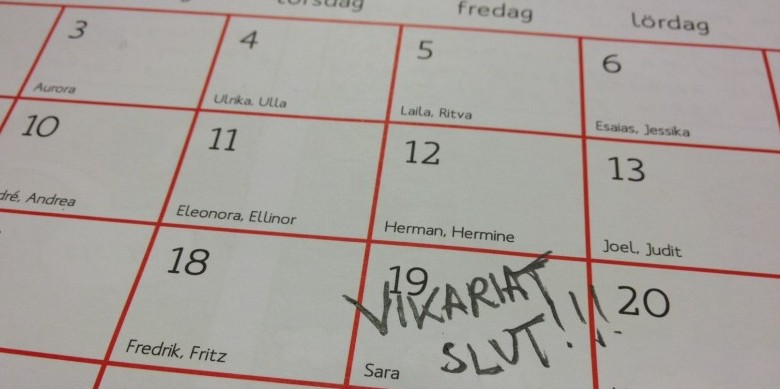 torsdag fredag lördag
3 4 5 6
Aurora Ulrika, Ulla Laila, Ritva Esaias, Jessika
10 11 12 13
dré, Andrea Eleonora, Ellinor Herman, Hermine Joel, Judit
18 19 20
VIKARIAT
SLUT!!!
Fredrik, Fritz Sara